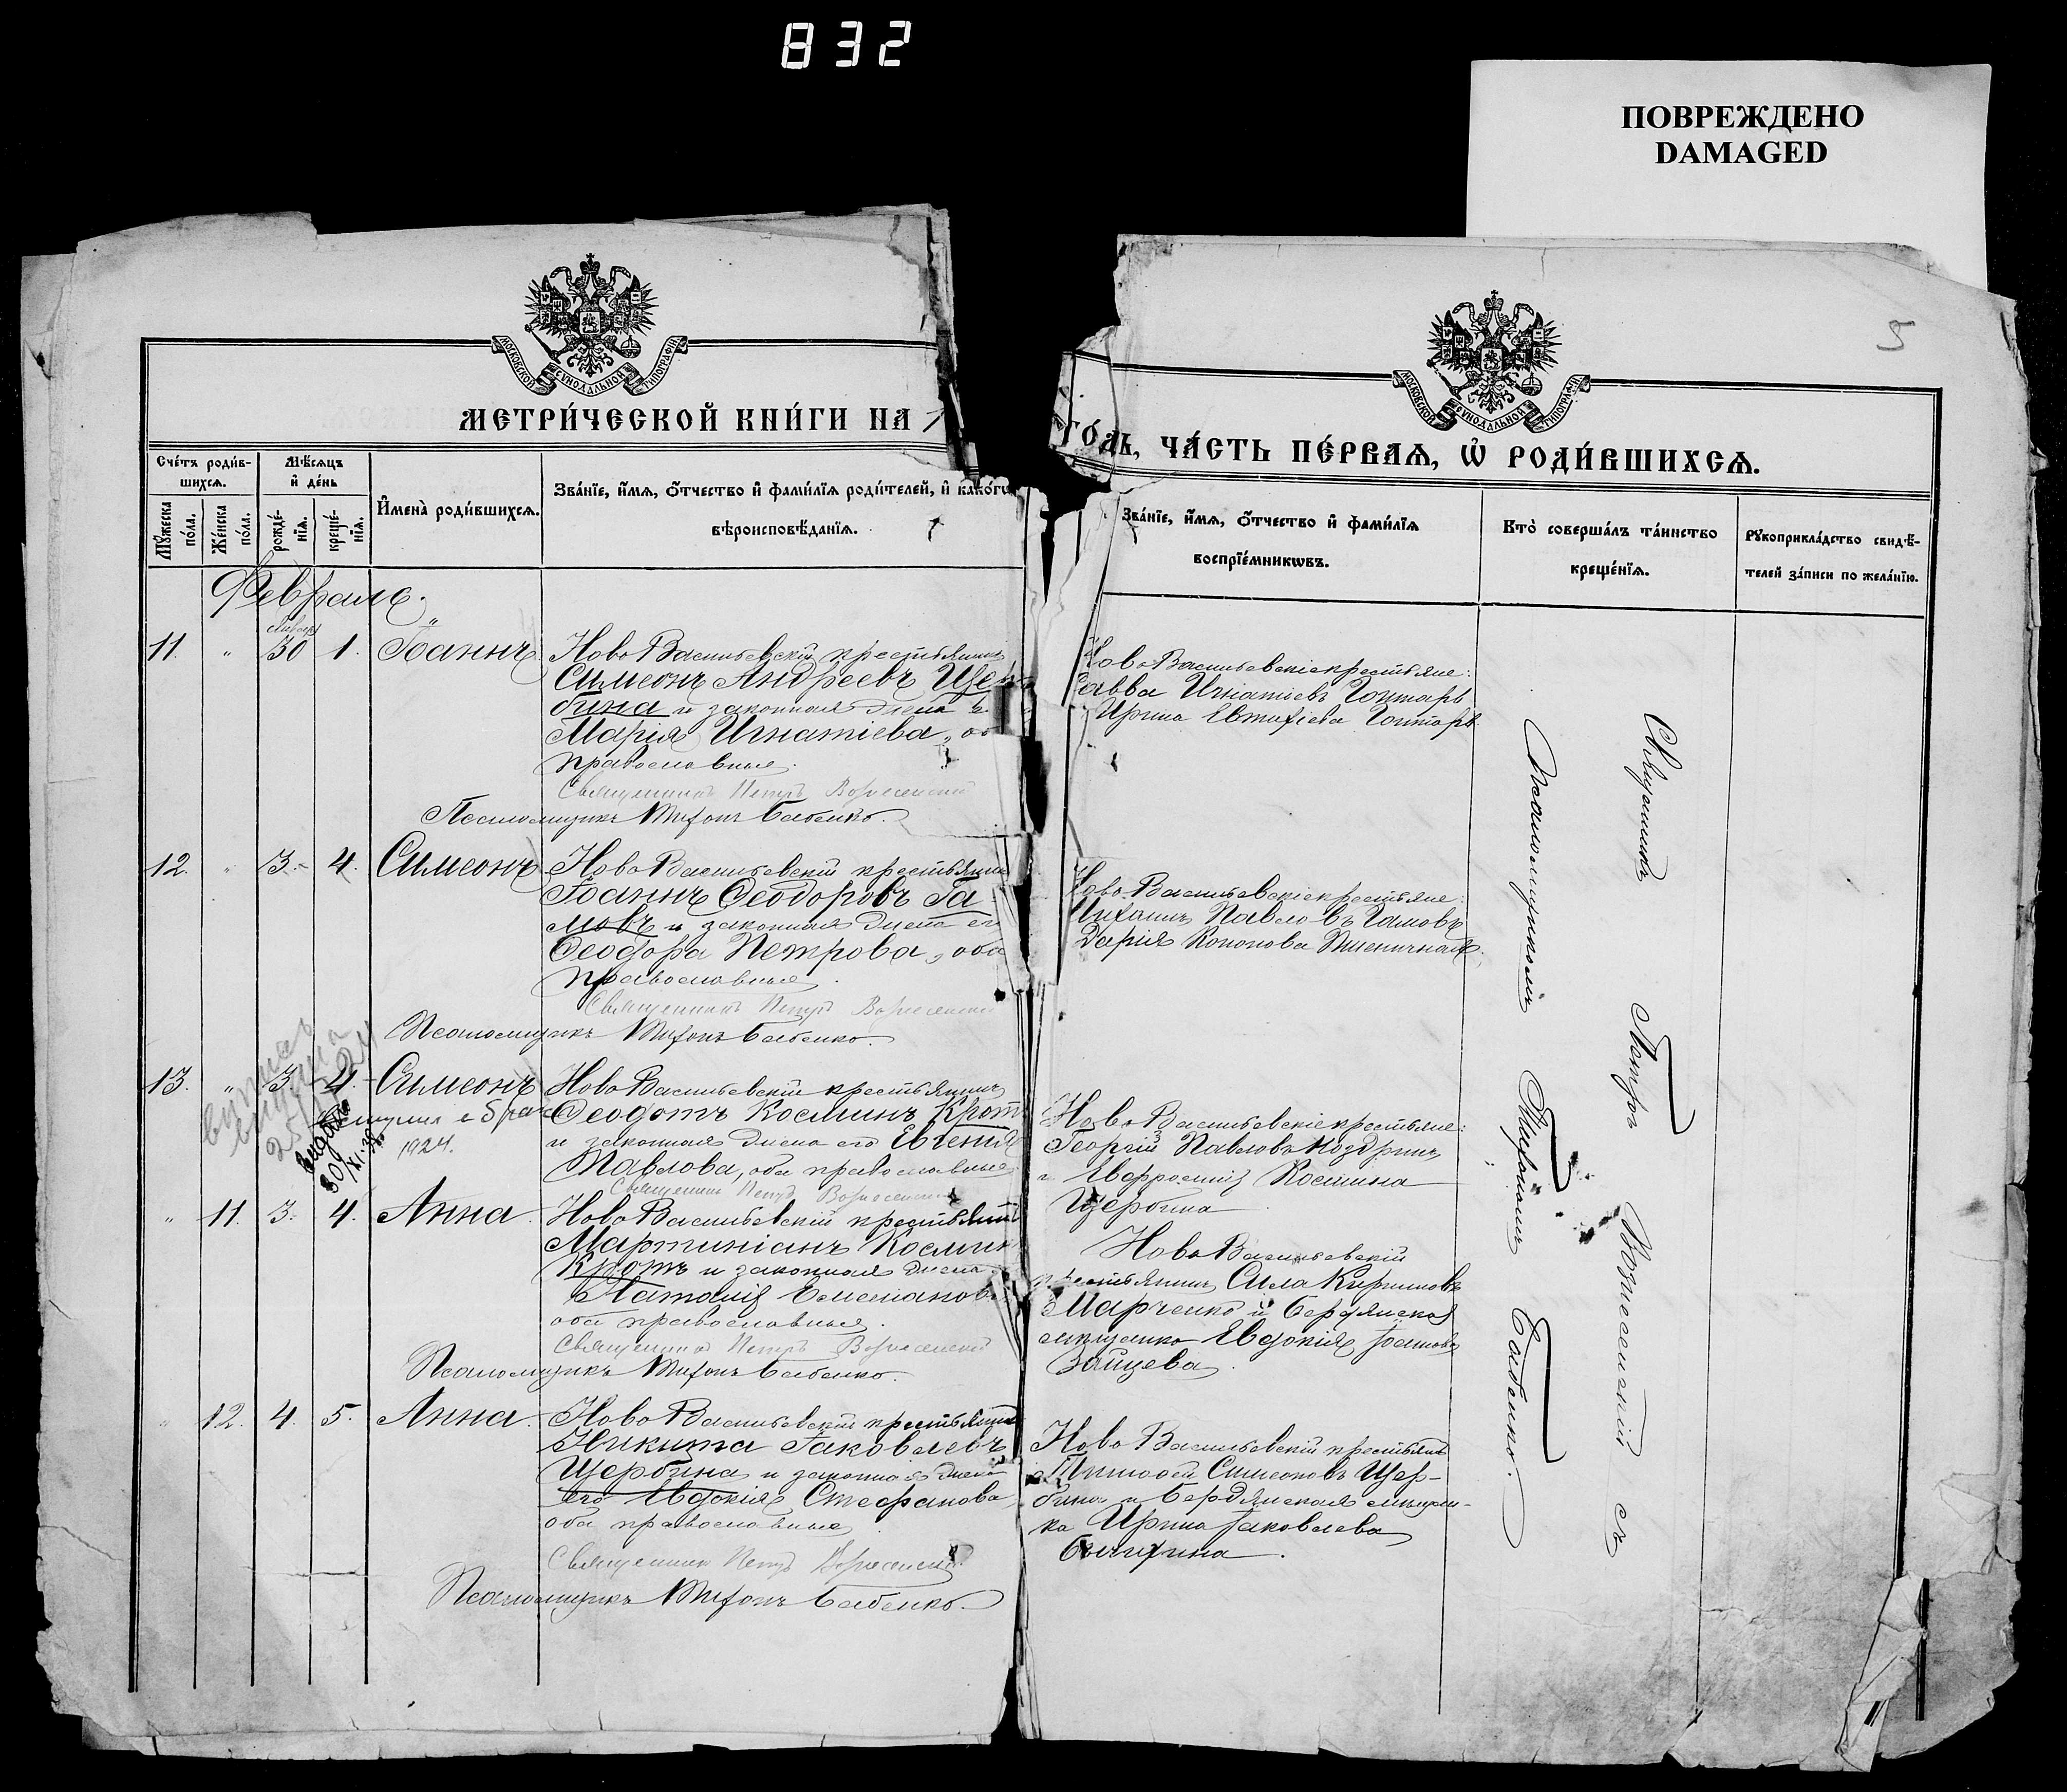 832
ПОВРЕЖДЕНО
DAMAGED
5
МОСКОВСКОЙ СѴНОДАЛЬНОЙ ТИПОГРАФІИ
МОСКОВСКОЙ СѴНОДАЛЬНОЙ ТИПОГРАФІИ
МЕТРИ́ЧЕСКОЙ КНИ́ГИ НА 1
ГО́ДЪ, ЧА́СТЬ ПЕ́РВАѦ, Ѡ҆ РОДИ́ВШИХСѦ.
Сче́тъ роди́в-
шихсѧ.
Мꙋ́жеска по́ла.
Же́нска по́ла.
Мѣ́сѧцъ
и҆ де́нь
рожде́-
нїѧ.
креще́-
нїѧ.
И҆мена̀ роди́вшихсѧ.
Зва́нїе, и҆́мѧ, ѻ҆́тчество и҆ фами́лїѧ роди́телей, и҆ како́гѡ
вѣроисповѣ́данїѧ.
Зва́нїе, и҆́мѧ, ѻ҆́тчество и҆ фами́лїѧ
воспрїе́мникѡвъ.
Кто̀ соверша́лъ та́инство
креще́нїѧ.
Рꙋкоприкла́дство свидѣ́-
телей за́писи по жела́нїю.
Февраль.
11. " Января 30 1. Іоаннъ.
Ново Васильевскій крестьянинъ
Симеонъ Андреевъ Щер
бина и законная жена е
Марія Игнатіева, об
православные.
Священникъ Петръ Вознесенскій
Псаломщикъ Тихонъ Бабенко.
Ново Васильевскіе крестьяне:
Савва Игнатіевъ Гонтарь
Ирина Евтихіева Гонтарь
12. " 3. 4. Симеонъ
Ново Васильевскій крестьянин
Іоаннъ Ѳеодоровъ Га
мовъ и законная жена его
Ѳеодора Петрова, оба
православные.
Священникъ Петръ Вознесенскій
Псаломщикъ Тихонъ Бабенко.
Ново Васильевскіе крестьяне:
Михаилъ Павловъ Гамовъ
Дарія Кононова Пшеничная.
13. " 3. 4. Симеонъ
1924.
Ново Васильевскій крестьянинъ
Ѳеодотъ Косминъ Кротъ
и законная жена его Евгенія
Павлова, оба православные
Священникъ Петръ Вознесенскій
Ново Васильевскіе крестьяне:
Георгій Павловъ Ноздринъ
и Евфросинія Космина
Щербина
" 11. 3. 4. Анна.
Ново Васильевскій крестьянинъ
Мартиніанъ Косминъ
Кротъ и законная жена
Наталія Емеліанов
оба православные.
Священникъ Петръ Вознесенскій
Псаломщикъ Тихонъ Бабенко.
Ново Васильевскій
крестьянинъ Сила Кирилловъ
Марченко и Бердянская
мѣщанка Евдокія Іоаннова
Зайцева.
" 12. 4. 5. Анна.
Ново Васильевскій крестьянинъ
Никита Іаковлевъ
Щербина и законная жена
его Евдокія Стефанова
оба православные
Священникъ Петръ Вознесенскій
Псаломщикъ Тихонъ Бабенко.
Ново Васильевскій крестьянинъ
Тимоѳей Симеоновъ Щер-
бина и Бердянская мѣщан-
ка Ирина Іаковлева
Священникъ Петръ Вознесенскій съ
псаломщикомъ Тихономъ Бабенко.